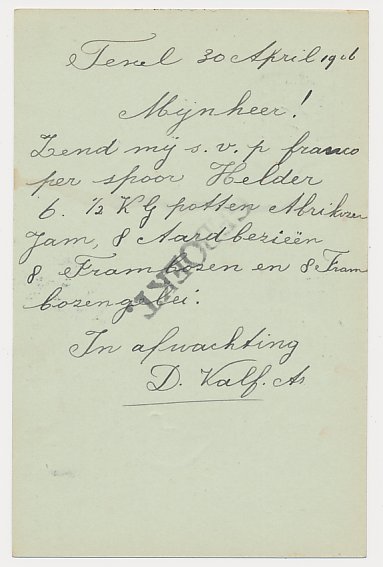 Texel 30 April 1906
Mijnheer!
Zend mij s.v.p. franco
per spoor Helder
6. 1/2 KG potten Abrikozen
Jam, 8 Aardbezieën
8 Frambozen en 8 Fram
bozengelei.
In afwachting
D. Kalf. Az
GEBOEKT.